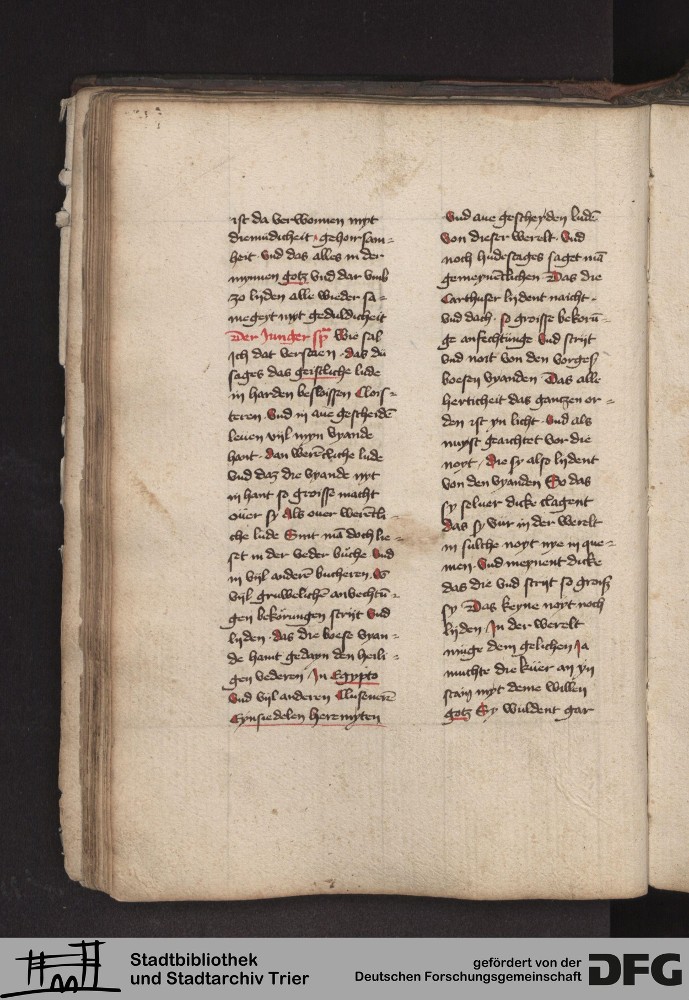 ist da verwonnen myt
diemudicheit · gehorsam=
heit · vnd das alles in der
mynnen gotz vnd dar vmb
zo lyden alle wieder sa=
negeyt myt geduldicheit
Der Junger spͬ Wie sal
ich dat verstaen · das du
sages das geistliche lude
in harden beslossen Clois=
teren · Vnd in aue gescheidē
leuen vijl myn vyande
hant · dan werētliche lude
vnd daz die vyande nyt
in hant so groisse macht
ouer sy Als ouer werētli=
che lude Sint mā doch lie=
set in der veder buche Vnd
in vijl anderē bucheren
vijl gruwelichē anvechtū=
gen bekorungen strijt Vnd
lijden · das die boese vyan=
de haint gedayn den heili=
gen vederen Jn Egypto
Vnd vijl anderen Clusenerē
Eynsiedelen heremyten
Vnd aue gescheyden ludē
Von dieser werelt · Vnd
noch hudestages saget mā
gemeynētlichen Das die
Carthuser lijdent naicht ·
vnd dach · so groisse bekorū=
ge anfechtūge Vnd strijt
vnd noit von den vorges
boesen vyanden Das alle
herticheit das gantzen or=
den ist yn licht · Vnd als
nuyst geaichtet vor die
noyt / Die sy also lijdent
von den vyanden So das
sy seluer dicke clagent
Das sy vur in der werelt
in sulche noyt nye in que=
men · Vnd meynent dicke
das die vnd strijt so groiß
sy Das keyne noyt noch
lijden Jn der werelt
muge dem gelichen Ja
muchte die kuer an yn
stayn myt deme willen
gotz Sy wuldent gar
Stadtbibliothek
und Stadtarchiv Trier
gefördert von der
Deutschen Forschungsgemeinschaft
DFG